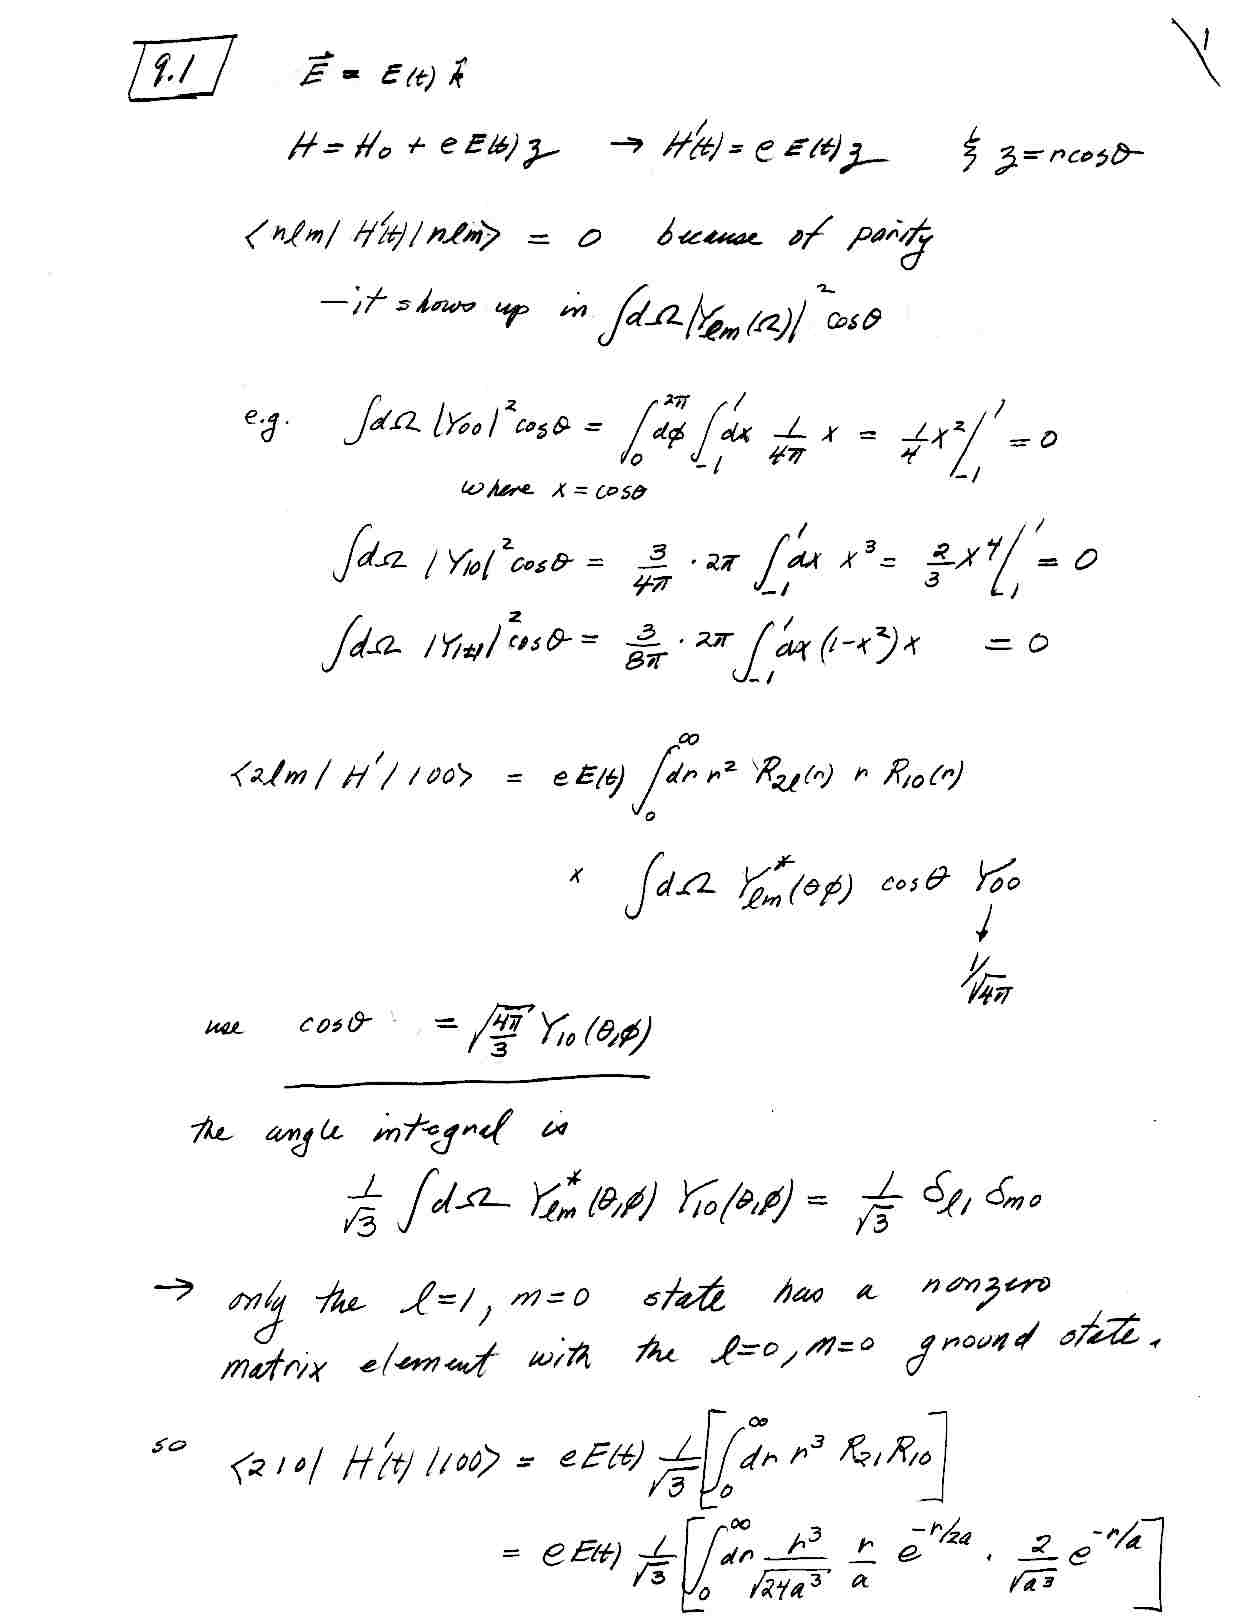 9.1 E⃗ = E(t) k̂
1
H = H₀ + e E(t) z → H'(t) = e E(t) z & z = r cosθ
<nlm| H'(t) |nlm> = 0 because of parity
— it shows up in ∫dΩ |Yₗₘ(Ω)|² cosθ
e.g. ∫dΩ |Y₀₀|² cosθ = ∫₀^{2π} dφ ∫₋₁^1 dx 1/4π x = 1/4 x² |₋₁^1 = 0
where x = cosθ
∫dΩ |Y₁₀|² cosθ = 3/4π · 2π ∫₋₁^1 dx x³ = 2/3 x⁴ |₋₁^1 = 0
∫dΩ |Y₁±₁|² cosθ = 3/8π · 2π ∫₋₁^1 dx (1-x²) x = 0
<2lm| H' |100> = e E(t) ∫₀^∞ dr r² R₂ₗ(r) r R₁₀(r)
x ∫dΩ Y*ₗₘ(θφ) cosθ Y₀₀
↓
1/√4π
use cosθ = √(4π/3) Y₁₀(θ,φ)
the angle integral is
1/√3 ∫dΩ Y*ₗₘ(θ,φ) Y₁₀(θ,φ) = 1/√3 δₗ₁ δₘ₀
→ only the l=1, m=0 state has a nonzero
matrix element with the l=0, m=0 ground state.
so <210| H'(t) |100> = e E(t) 1/√3 [∫₀^∞ dr r³ R₂₁ R₁₀]
= e E(t) 1/√3 [∫₀^∞ dr r³/√(24a³) r/a e^{-r/2a} · 2/√a³ e^{-r/a}]